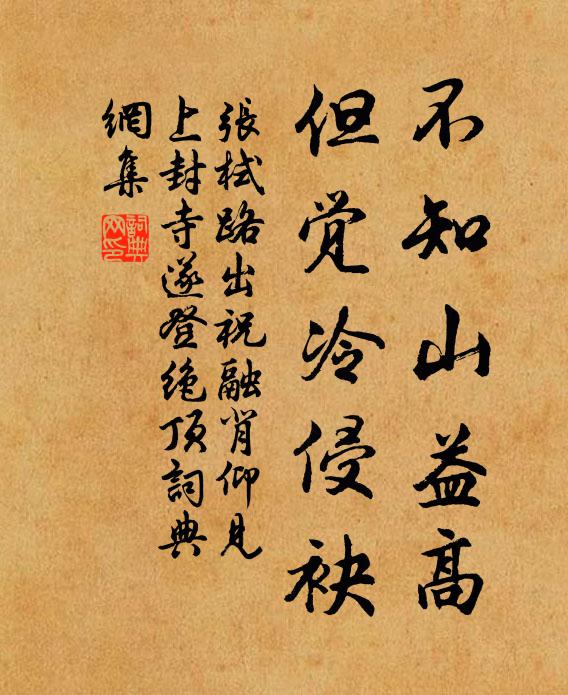 不知山益高
但觉冷侵袂
張栻路出祝融背仰見
上封寺遂登绝顶詞典
網集
詞典网印